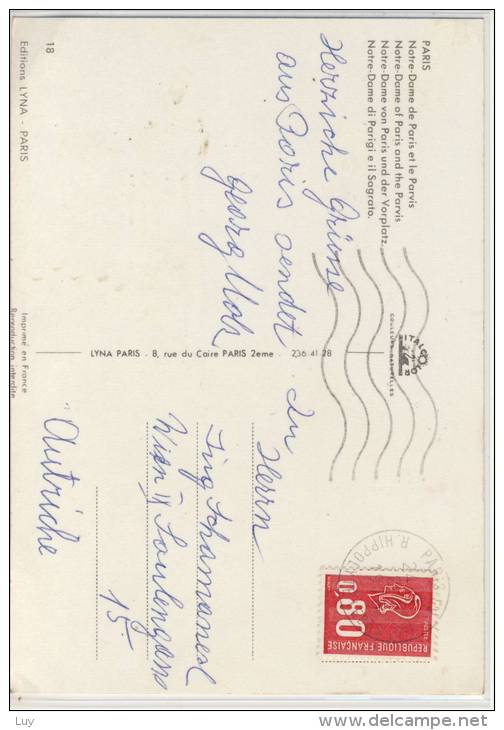 PARIS
Notre-Dame de Paris et le Parvis
Notre-Dame of Paris and the Parvis
Notre-Dame von Paris und der Vorplatz
Notre-Dame di Parigi e il Sagrato.
Herzliche Grüsse
aus Paris sendet
Georg
18
Editions LYNA - PARIS
Imprimé en France
Reproduction interdite
LYNA PARIS - 8, rue du Caire PARIS 2eme - 236.41-28
ITALCOLOR
COULEURS NATURELLES
An
Herrn
Ing
Wien
15
Autriche
R. HIPPO
0,80
POSTES
REPUBLIQUE FRANÇAISE
Luy
http://www.delcampe.net